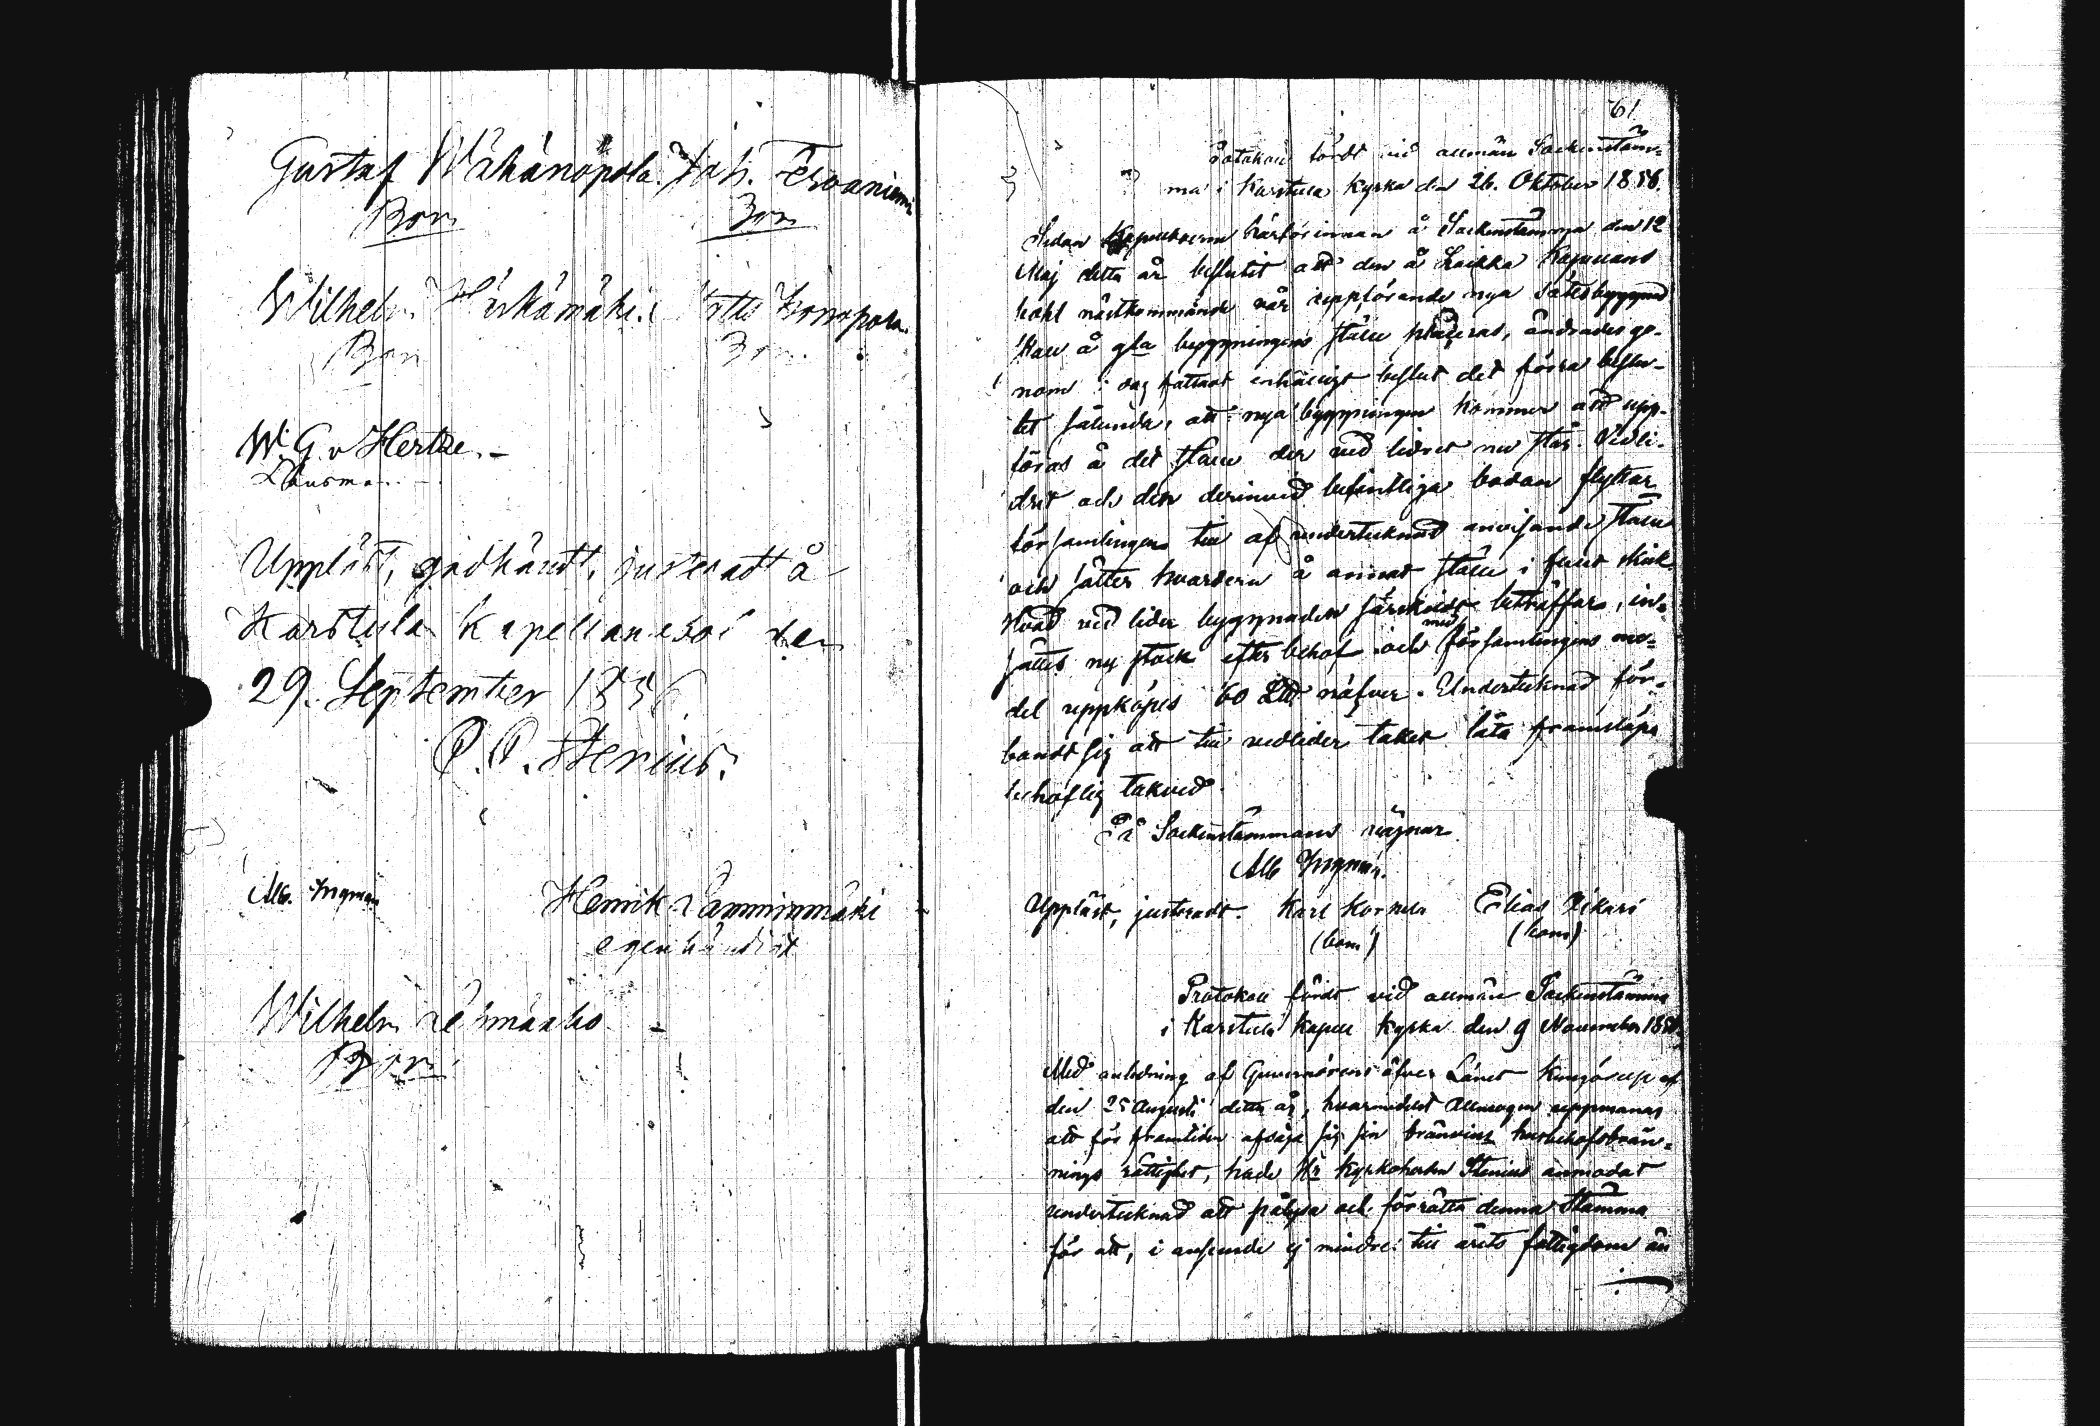 Gustaf Wähänöpola. Joh. Tervaniemi
Bon Bon
Wilhelm Hirkämäki. Kinopola.
Bon Bon.
W. G. v Hertze. –
Länsman.
Uppläst, godkändt, justeradt å
Karstula Kapellansbol den
29. September 1856
P. P. Stenius.
Alb. Ingman Henrik Lamminmäki
egenhändigt
Wilhelm Lehmäaho –
Bon
61
Protokoll fördt vid allmän Sockenstäm-
ma i Karstula Kyrka den 26. Oktober 1856.
Sedan Kapellboerne härförinnan å Sockenstämma den 12
Maj detta år beslutit att den å Laikka Kapellans
bohl nästkommande vår uppförande nya sätesbyggnad
skall å gla byggningens ställe placeras, ändrades ge-
nom i dag fattadt enhälligt beslut det förra beslu-
tet sålunda, att nya byggningen kommer att upp-
föras å det ställe der vedlidret nu står. Vedli-
dret och den derinvid befintliga bodan flyttar
församlingen till af undertecknad anvisande ställe
och sätter hvardera å annat ställe i fullt skick.
Hvad vedlider byggnaden särskildt beträffar, in-
sättes ny stock efter behof och med församlingens me-
del uppköpes 60 Ltt näfver. Undertecknad för-
bandt sig att till vedlider taket låta framsläpa
behöflig takved.
På Sockenstämmans vägnar
Alb Ingman.
Uppläst, justeradt. Karl Elias Pikari
(bom) (bom)
Protokoll fördt vid allmän Sockenstämma
i Karstula Kapell Kyrka den 9 November 1856.
Med anledning af Guvernörens öfver Länet Kungörelse af
den 25 Augusti detta år, hvarmedelst Allmogen uppmanas
att för framtiden afsäga sig sin bränvins husbehofsbrän-
nings rättighet, hade Hr Kyrkoherden Stenius anmodat
undertecknad att pålysa och förrätta denna Stämma
för att, i anseende ej mindre till årets fattigdom än